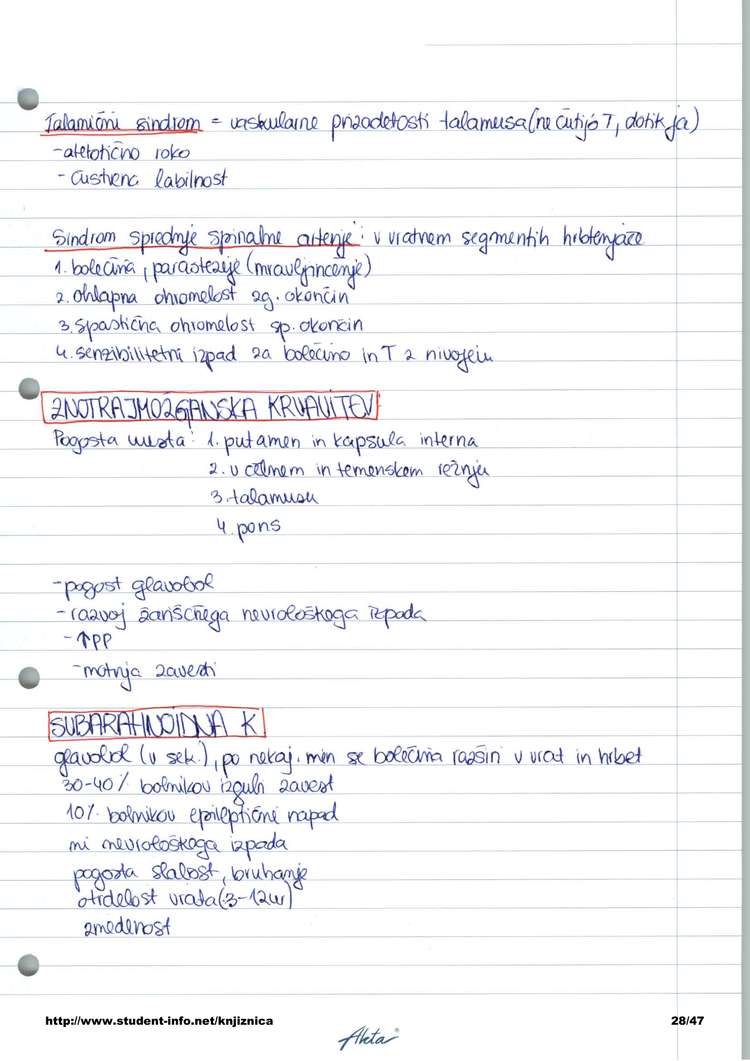 Talamični sindrom = vaskularne prizadetosti talamusa (ne čutijo T, dotik ja)
- atetotično roko
- čustvena labilnost
Sindrom sprednje spinalne arterije: v vratnem segmentih hrbtenjače
1. bolečina, parastezije (mravljinčenje)
2. ohlapna ohromelost zg. okončin
3. spastična ohromelost sp. okončin
4. senzibilitetni izpad za bolečino in T z nivojem
ZNOTRAJMOŽGANSKA KRVAVITEV
Pogosta mesta: 1. putamen in kapsula interna
2. v čelnem in temenskem režnju
3. talamusu
4. pons
- pogost glavobol
- razvoj žariščnega nevrološkega izpada
- ↑PP
- motnja zavesti
SUBARAHNOIDNA K
glavobol (v sek.), po nekaj. min se bolečina razširi v vrat in hrbet
30-40% bolnikov izgubi zavest
10% bolnikov epileptični napad
ni nevrološkega izpada
pogosta slabost, bruhanje
otrdelost vrata (3-12ur)
zmedenost
http://www.student-info.net/knjiznica
28/47
Akta